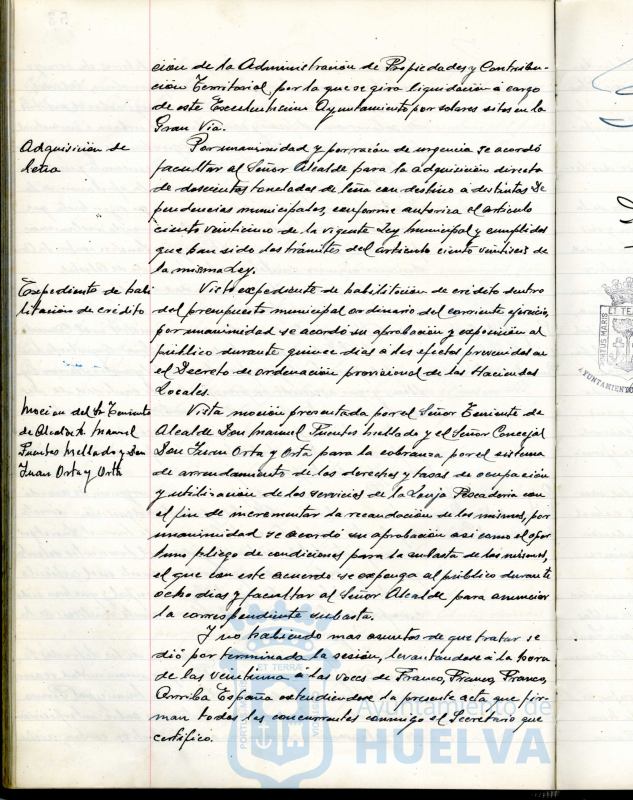 cion de la Administración de Propiedades y Contribu-
ción Territorial, por la que se gira liquidación a cargo
de este Excelentisimo Ayuntamiento por solares sitos en la
Gran Via.
Adquisicion de
leña
Por unanimidad y por razon de urgencia se acordó
facultar al Señor Alcalde para la adquisicion directa
de doscientas toneladas de leña con destino a distintas De
pendencias municipales, conforme autoriza el articulo
ciento veinticinco de la vigente Ley municipal y cumplidos
que han sido los trámites del articulo ciento veintiseis de
la misma Ley.
Expediente de habi
litación de crédito
Visto expediente de habilitación de crédito dentro
del presupuesto municipal ordinario del corriente ejercicio,
por unanimidad se acordó su aprobación y exposición al
público durante quince dias a los efectos prevenidos en
el Decreto de ordenación provisional de las Haciendas
Locales.
Mocion del Sr Teniente
de Alcalde D. Manuel
Fuentes Mellado y Don
Juan Orta y Orta
Vista moción presentada por el Señor Teniente de
Alcalde Don Manuel Fuentes Mellado y el Señor Concejal
Don Juan Orta y Orta para la cobranza por el sistema
de arrendamiento de los derechos y tasas de ocupación
y utilización de los servicios de la Lonja Pescaderia con
el fin de incrementar la recaudación de los mismos, por
unanimidad se acordó su aprobación asi como el opor
tuno pliego de condiciones para la subasta de los mismos,
el que con este acuerdo se exponga al público durante
ocho dias y facultar al Señor Alcalde para anunciar
la correspondiente subasta.
Y no habiendo mas asuntos de que tratar se
dió por terminada la sesión, levantandose a la hora
de las veintiuna a las voces de Franco, Franco, Franco,
Arriba España extendiendose la presente acta que fir-
man todos los concurrentes conmigo el Secretario que
certifico.
ET TERRA
Ayuntamiento de
HUELVA
PORTUS MARIS
ET TE
AYUNTAMIENTO